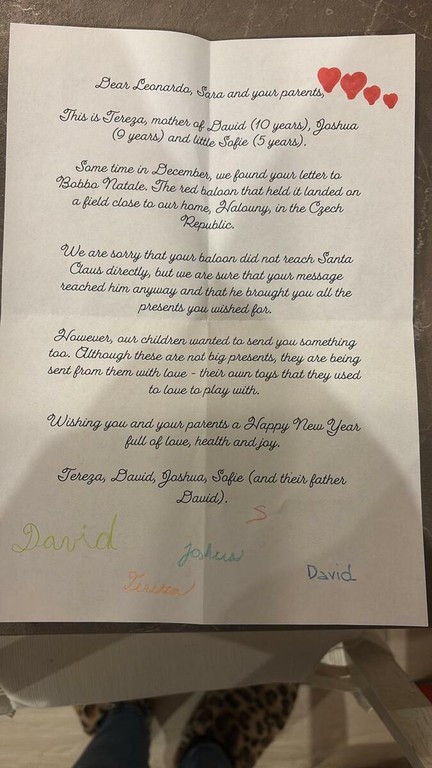 Dear Leonardo, Sara and your parents,
This is Tereza, mother of David (10 years), Joshua
(9 years) and little Sofie (5 years).
Some time in December, we found your letter to
Bobbo Natale. The red baloon that held it landed on
a field close to our home, Halouny, in the Czech
Republic.
We are sorry that your baloon did not reach Santa
Claus directly, but we are sure that your message
reached him anyway and that he brought you all the
presents you wished for.
However, our children wanted to send you something
too. Although these are not big presents, they are being
sent from them with love - their own toys that they used
to love to play with.
Wishing you and your parents a Happy New Year
full of love, health and joy.
Tereza, David, Joshua, Sofie (and their father
David).
S
David
Joshua
Tereza
David